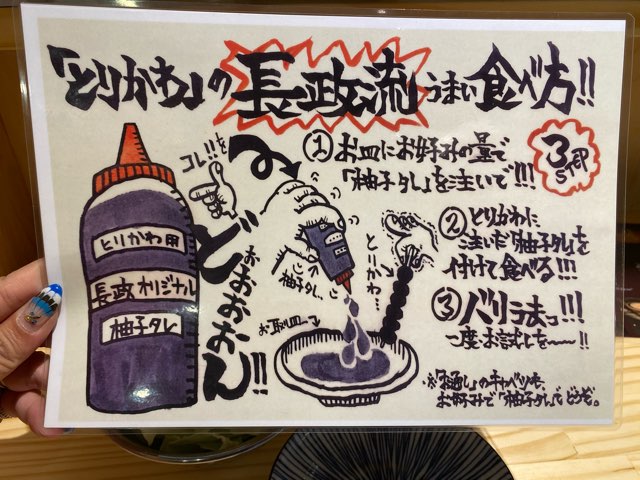 「とりかわ」の長政流うまい食べ方!!
コレ!!を
どぉぉぉぉん!!
とりかわ用
長政オリジナル
柚子タレ
柚子タレ
とりかわ…
お取皿
①お皿にお好みの量で
「柚子タレ」を注いで!!!
②とりかわに
注いだ「柚子タレ」を
付けて食べる!!!
③バリうまっ!!!
一度お試しを〜〜!!
※「お通し」のキャベツも、
お好みで「柚子タレ」でどうぞ。